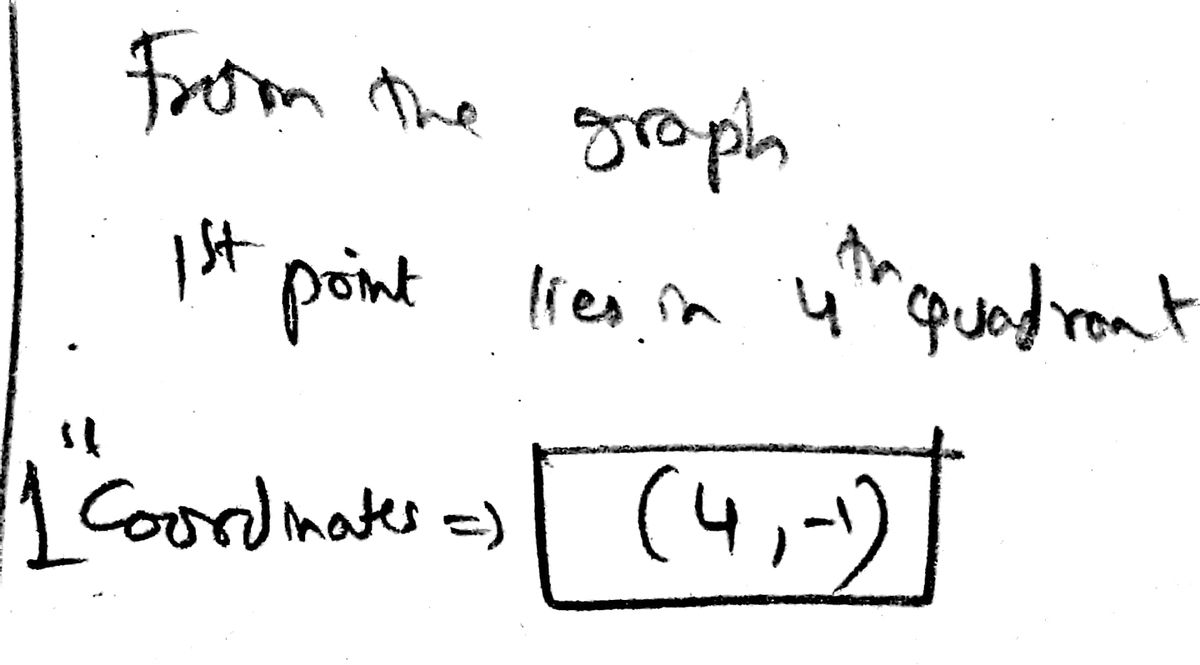 From the graph
1st point lies in 4th quadrant
1" Coordinates => (4,-1)